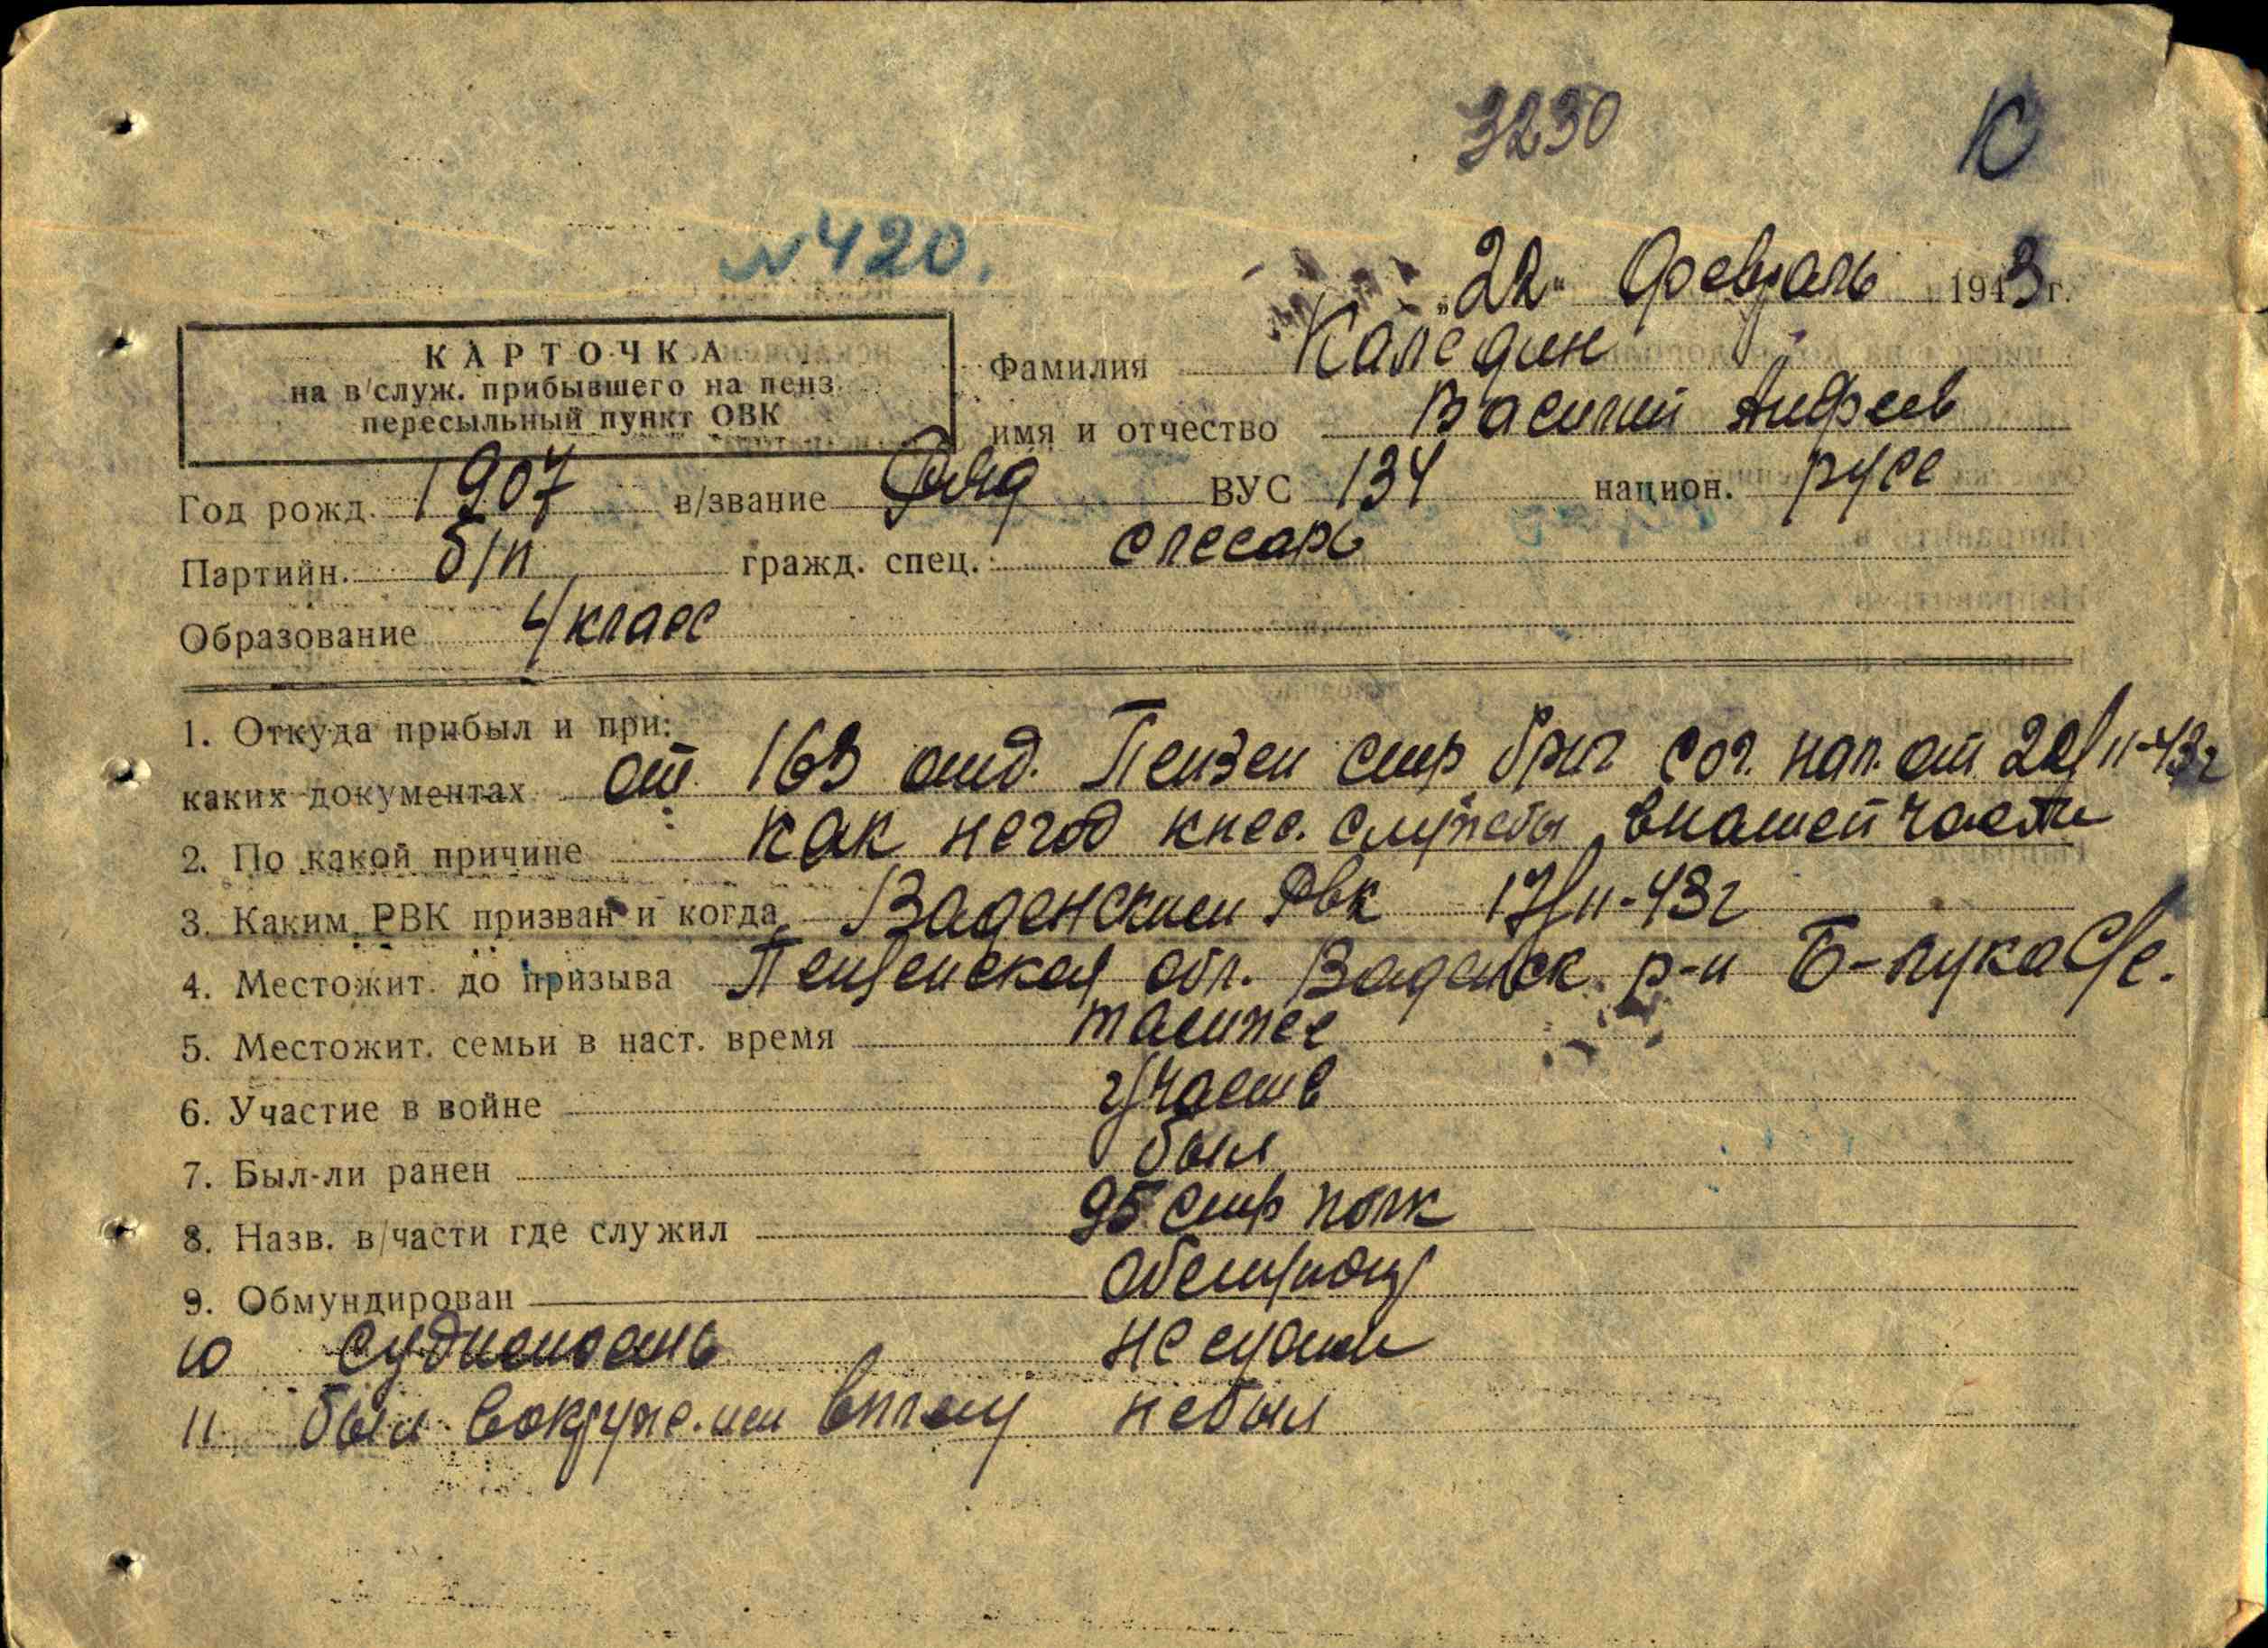 3230
К
№ 420.
„22" Февраль 1943 г.
КАРТОЧКА
на в/служ. прибывшего на пенз.
пересыльный пункт ОВК
Фамилия Каледин
имя и отчество Василий Андреев
Год рожд. 1907 в/звание Ряд ВУС 134 национ. русс
Партийн. б/п гражд. спец. слесарь
Образование 4/класс
1. Откуда прибыл и при:
каких документах от 163 отд. Пензен стр бриг сог. нап. от 22/II-43г
2. По какой причине как негод к нес. службы в нашей части
3. Каким РВК призван и когда Ваденским Рвк 17/II-43г
4. Местожит. до призыва Пензенская обл. Вадинск р-н Б-лука С/с.
5. Местожит. семьи в наст. время там же
6. Участие в войне участв
7. Был-ли ранен был
8. Назв. в/части где служил 95 стр полк
9. Обмундирован
10 Судимость не судим
11 был в окруже. или в плену не был